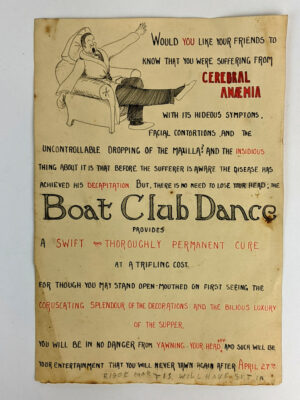 WOULD YOU LIKE YOUR FRIENDS TO
KNOW THAT YOU WERE SUFFERING FROM
CEREBRAL
ANÆMIA
WITH ITS HIDEOUS SYMPTOMS,
FACIAL CONTORTIONS, AND THE
UNCONTROLLABLE DROPPING OF THE MAXILLA? AND THE INSIDIOUS
THING ABOUT IT IS THAT BEFORE THE SUFFERER IS AWARE THE DISEASE HAS
ACHIEVED HIS DECAPITATION. BUT, THERE IS NO NEED TO LOSE YOUR HEAD, THE
Boat Club Dance
PROVIDES
A SWIFT AND THOROUGHLY PERMANENT CURE
AT A TRIFLING COST.
FOR THOUGH YOU MAY STAND OPEN-MOUTHED ON FIRST SEEING THE
CORUSCATING SPLENDOUR OF THE DECORATIONS AND THE BILIOUS LUXURY
OF THE SUPPER,
YOU WILL BE IN NO DANGER FROM YAWNING YOUR HEAD OFF, AND SUCH WILL BE
YOUR ENTERTAINMENT THAT YOU WILL NEVER YAWN AGAIN AFTER APRIL 27TH
WILL HAVE SET IN